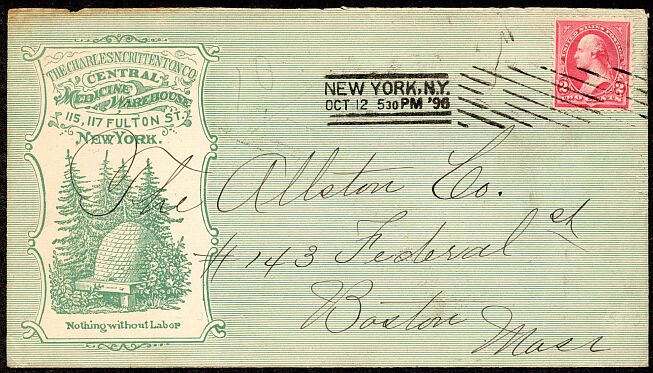 THE CHARLES N. CRITTENTON CO.
CENTRAL
MEDICINE WAREHOUSE
115, 117 FULTON ST.
NEW YORK.
Nothing without Labor
NEW YORK, N.Y.
OCT 12 530PM '96
UNITED STATES POSTAGE
2 2
TWO CENTS
The Allston Co.
# 143 Federal st
Boston
Mass